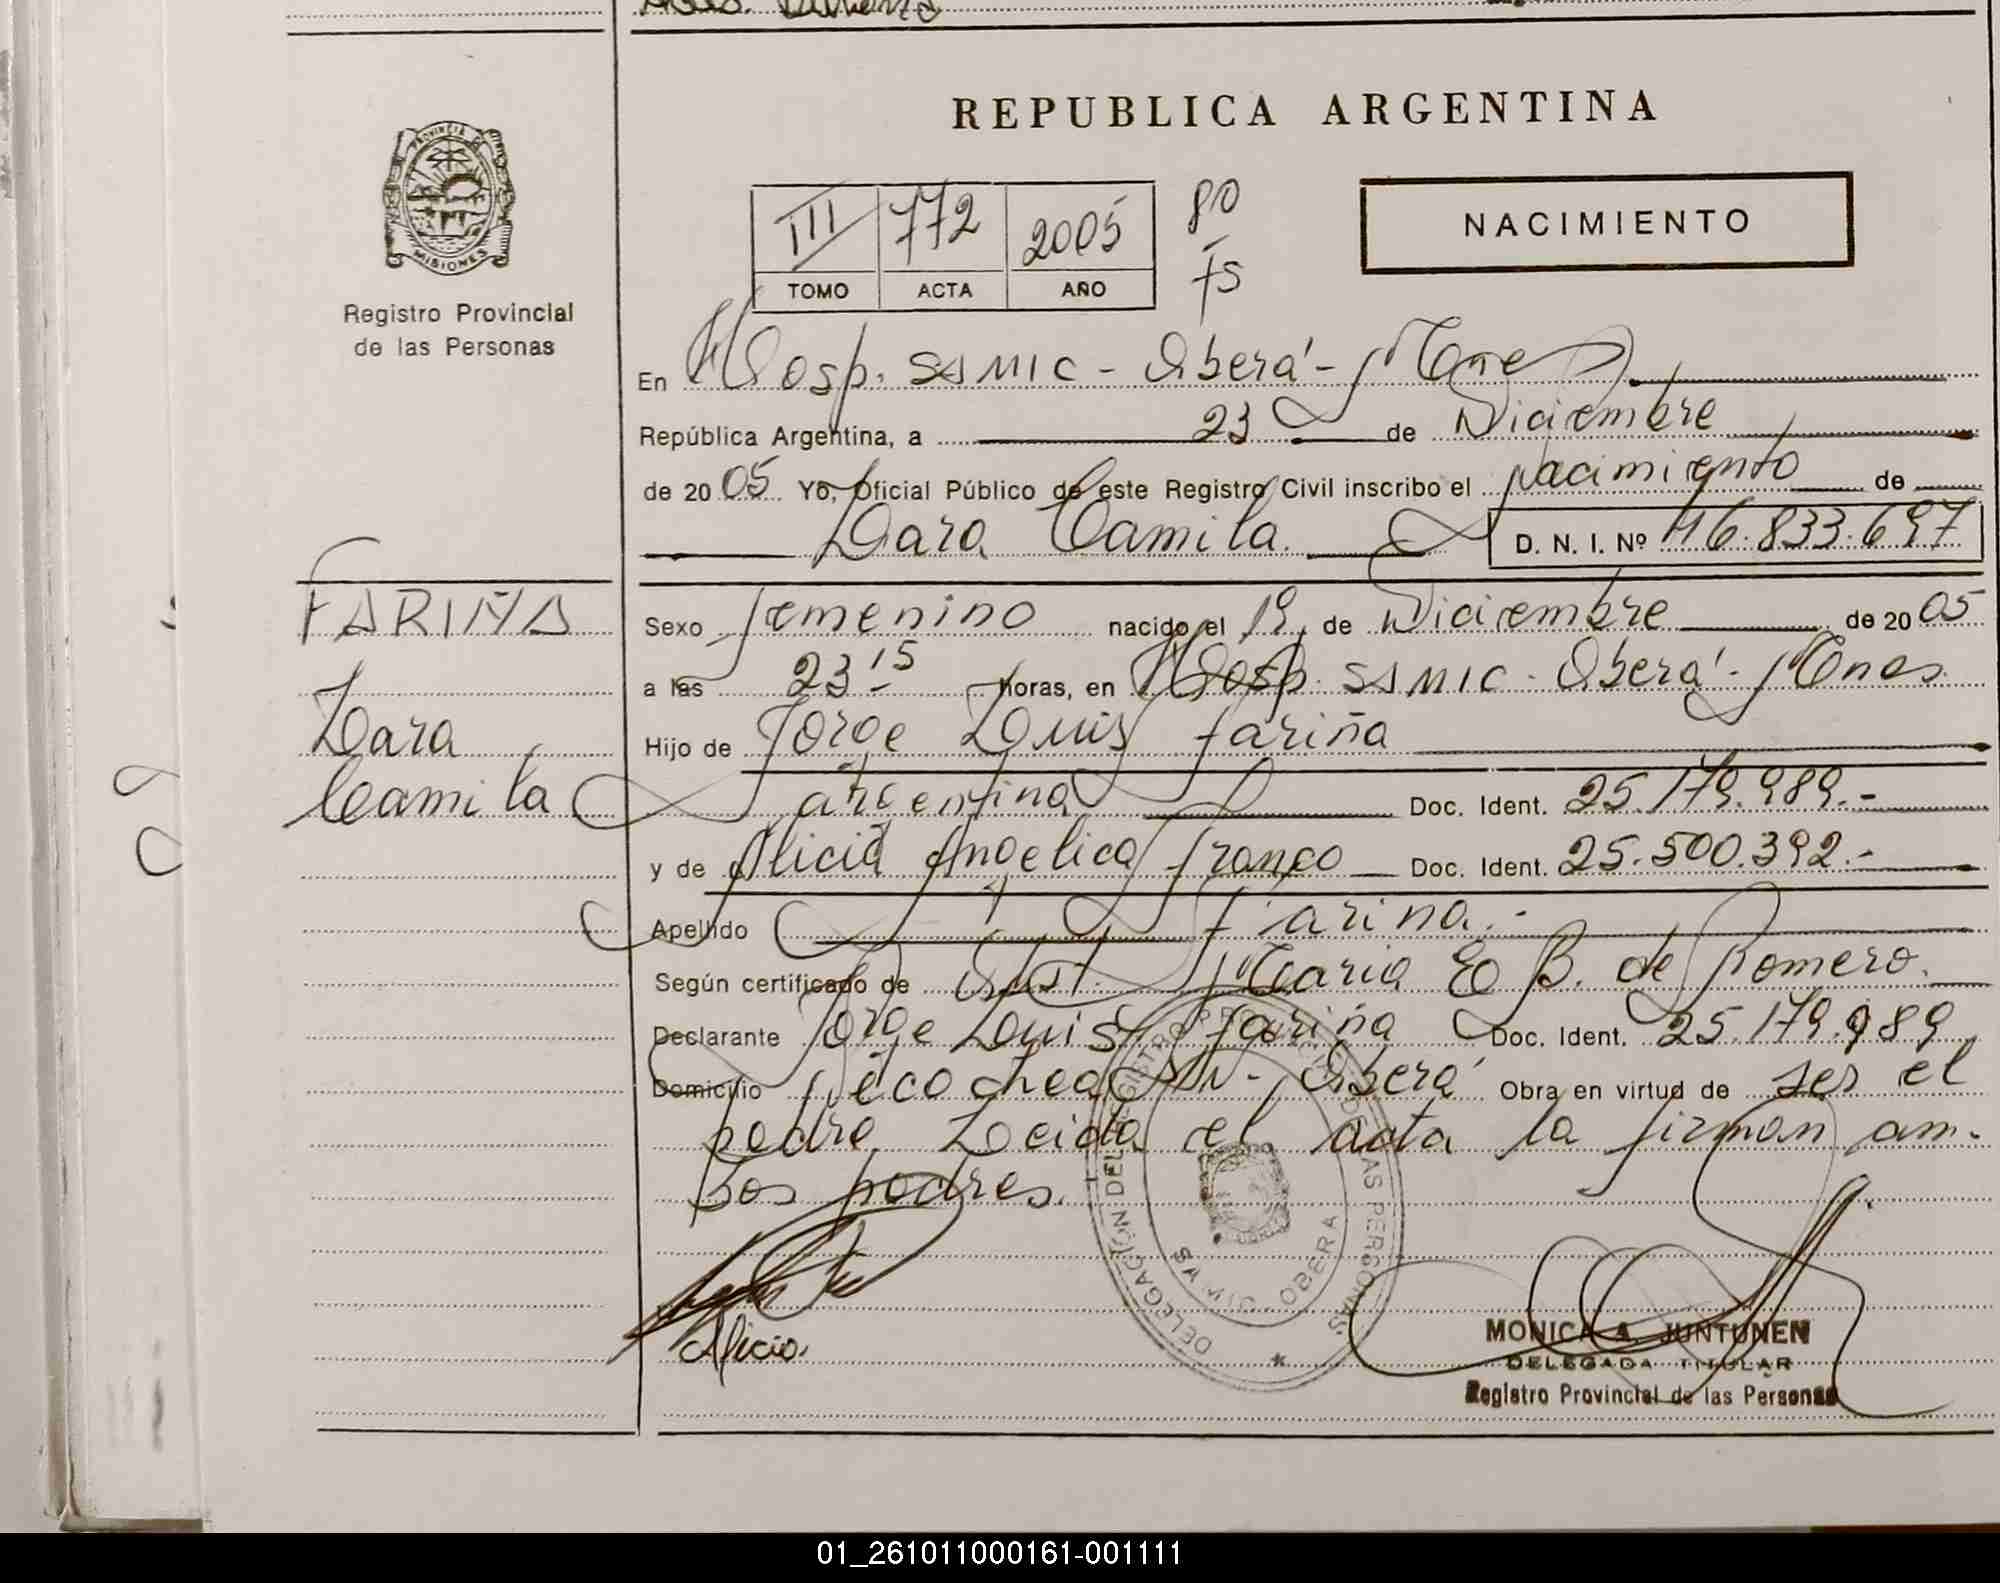 REPUBLICA ARGENTINA
PROVINCIA DE MISIONES
Registro Provincial
de las Personas
III 772 2005
TOMO ACTA AÑO
80
75
NACIMIENTO
En Hosp. SAMIC - Oberá - Mnes
República Argentina, a 23 de Diciembre
de 2005 Yo, Oficial Público de este Registro Civil inscribo el nacimiento de
Dara Camila. D. N. I. Nº 46.833.697
FARIÑA
Dara
Camila
Sexo femenino nacido el 19 de Diciembre de 2005
a las 23 15 horas, en Hosp. SAMIC - Oberá - Mnes.
Hijo de Jorge Luis Fariña
argentina Doc. Ident. 25.179.989.-
y de Alicia Angelica Franco Doc. Ident. 25.500.392.-
Apellido Fariña.-
Según certificado de Obst. Maria E. B. de Romero.
Declarante Jorge Luis Fariña Doc. Ident. 25.179.989
Domicilio Necochea S/N - Oberá Obra en virtud de ser el
padre. Leida el acta la firman am-
bos padres.
DELEGACIÓN DEL REGISTRO PROVINCIAL DE LAS PERSONAS
OBERA
Alicia
MONICA A. JUNTUNEN
DELEGADA TITULAR
Registro Provincial de las Personas
01_261011000161-001111